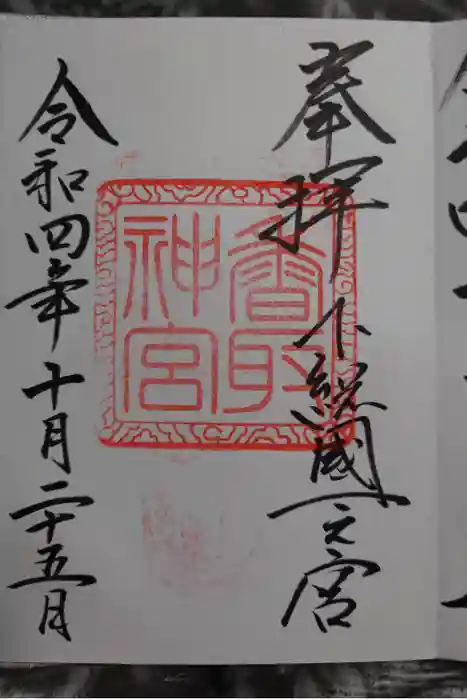 奉拝
下総國一之宮
香取
神宮
令和四年十月二十五日